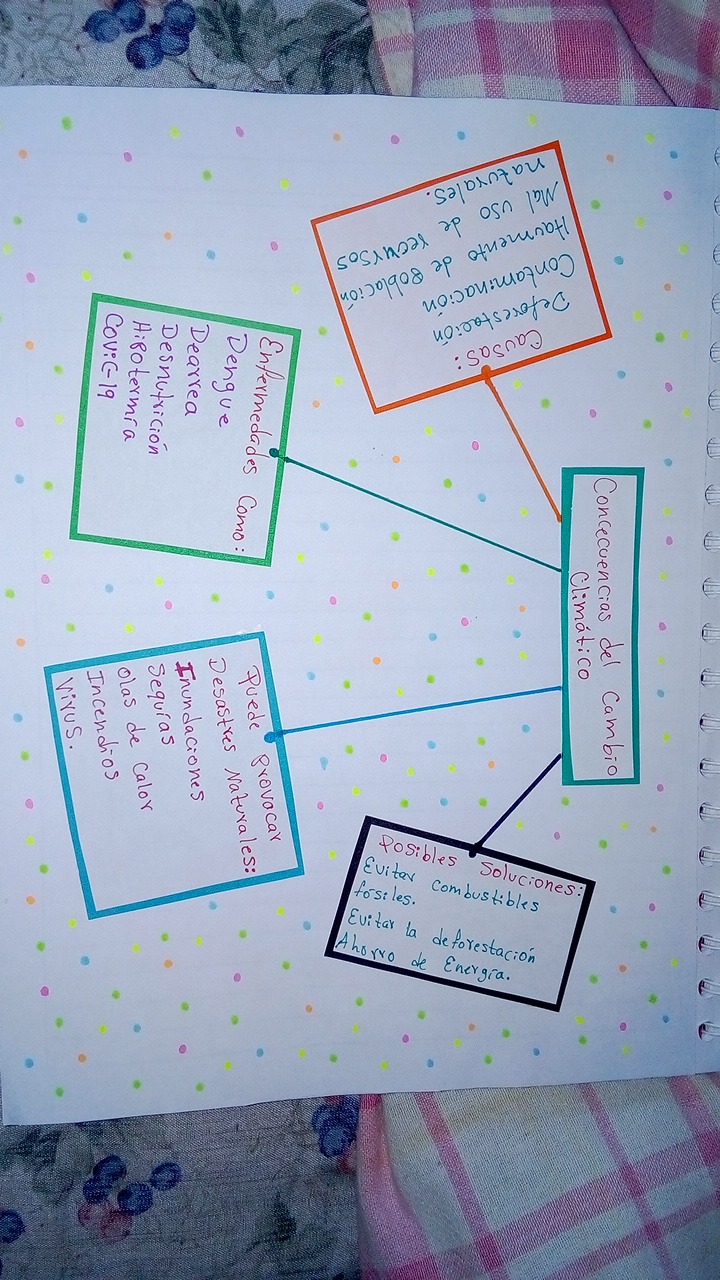 Concecuencias del Cambio
Climático
Causas:
Deforestación
Contaminación
Haumento de Población
Mal uso de recursos
naturales.
Enfermedades Como:
Dengue
Dearrea
Desnutrición
Hipotermia
Covic-19
Puede Provocar
Desastres Naturales:
Inundaciones
Sequías
olas de calor
Incendios
Virus.
Posibles Soluciones:
Evitar combustibles
fósiles.
Evitar la deforestación
Ahorro de Energía.